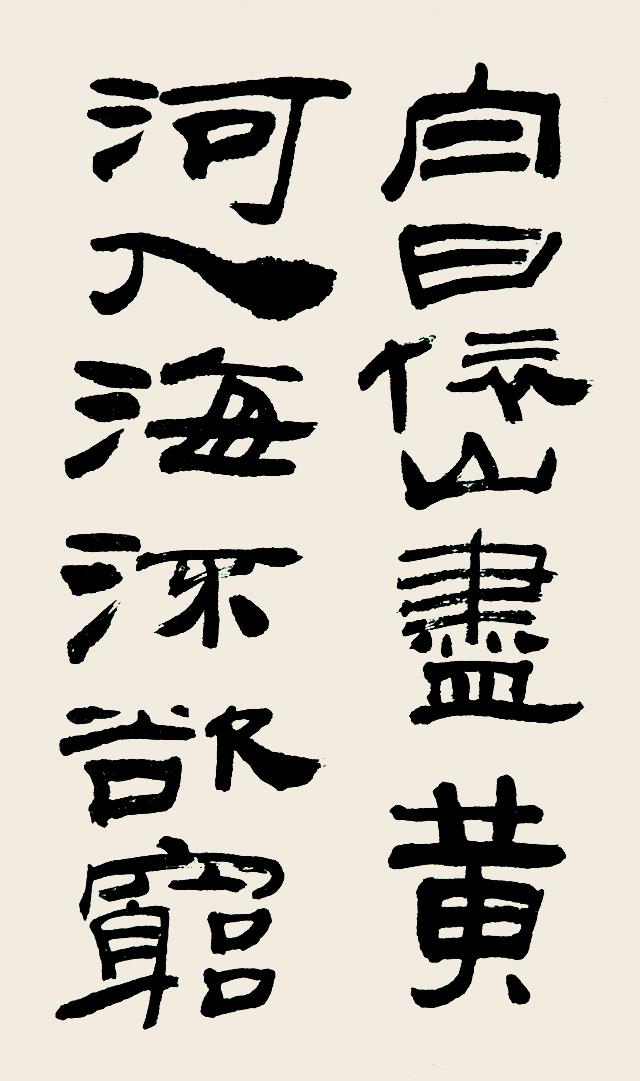 白日依山盡黃
河入海流欲窮